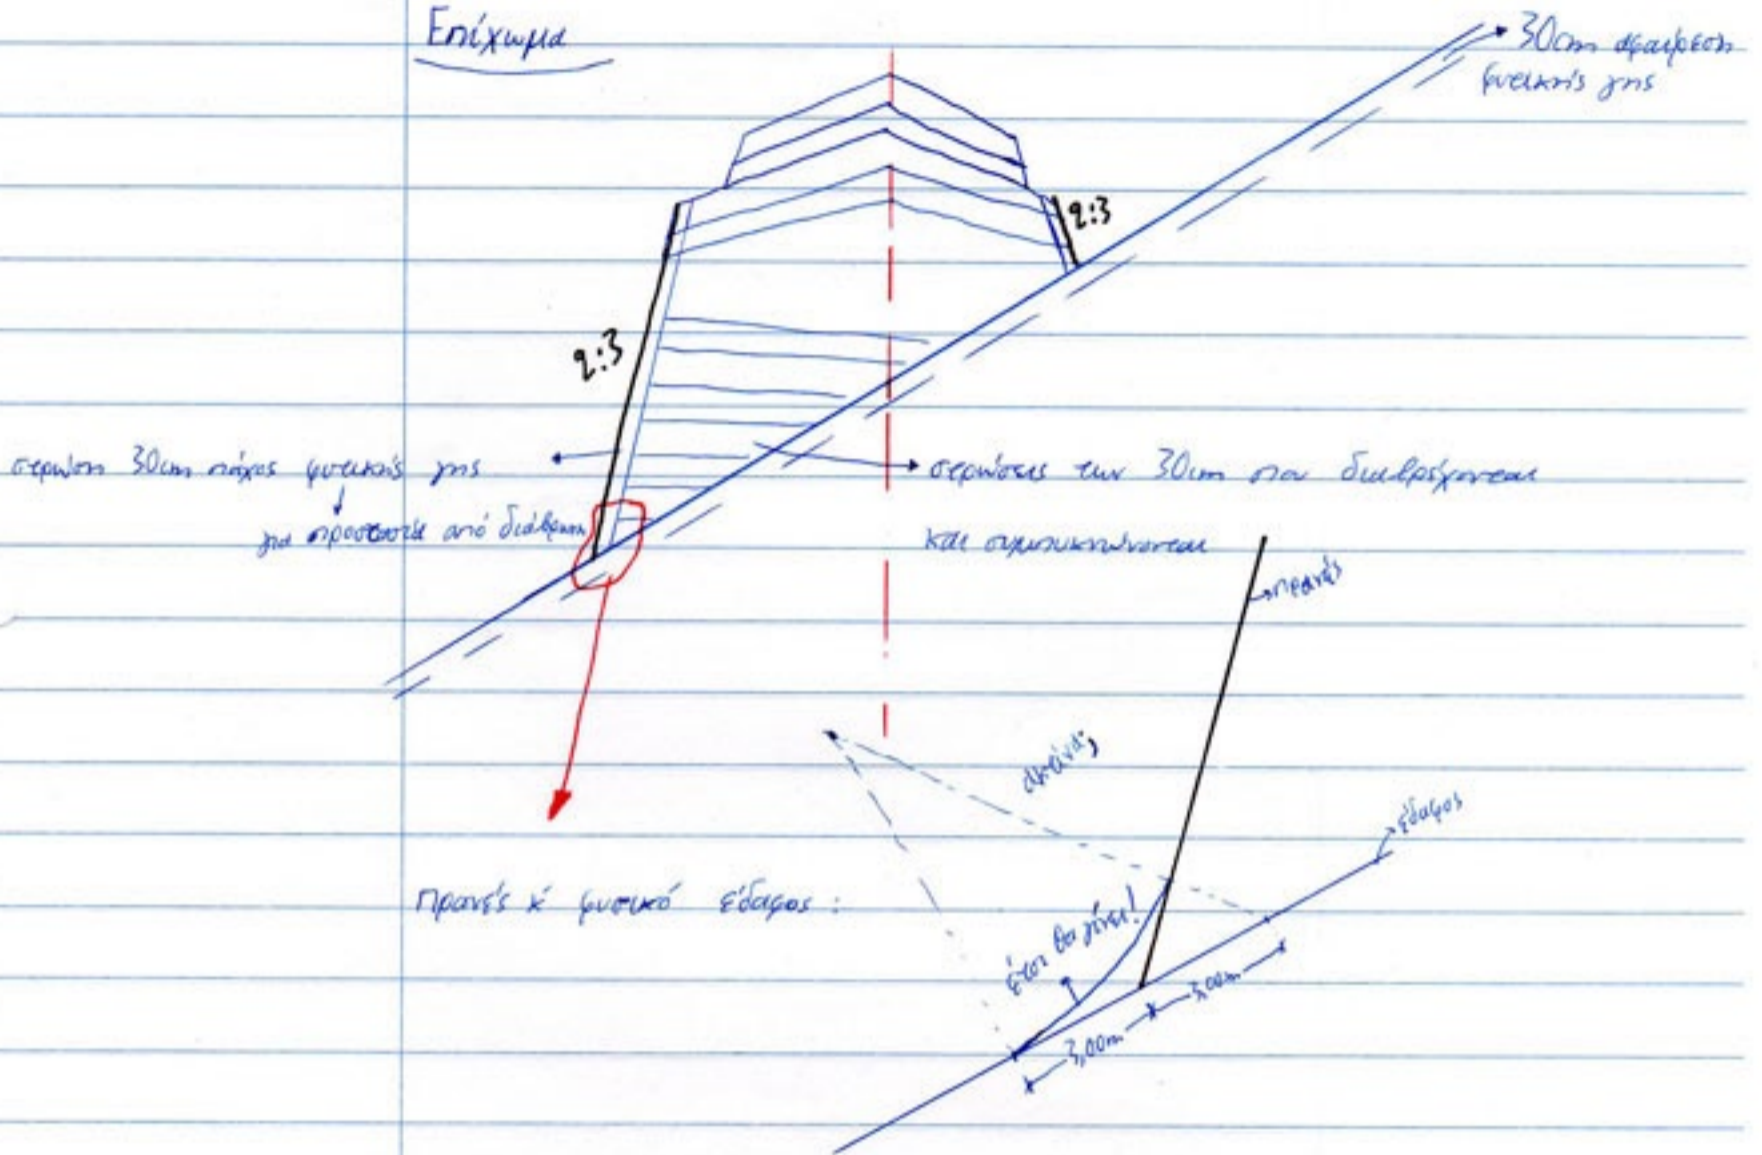 Επίχωμα
30cm αφαίρεση
φυτικής γης
2:3
2:3
στρώση 30cm πάχος φυτικής γης
για προστασία από διάβρωση
στρώσεις των 30cm που διαβρέχονται
και συμπυκνώνονται
πρανές
ακτίνα;
έδαφος
Πρανές κ' φυσικό έδαφος:
έτσι θα γίνει!
3,00m
3,00m